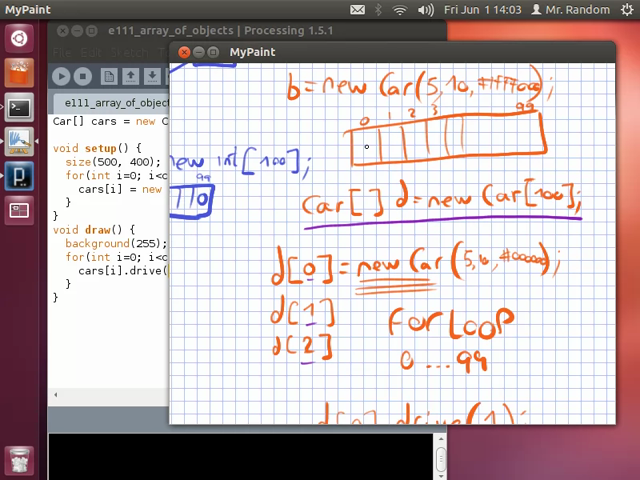 MyPaint
Fri Jun 1 14:03
Mr. Random
e111_array_of_objects | Processing 1.5.1
File Edit Sketch
MyPaint
e111_array_of_object
Car[] cars = new C
void setup() {
size(500, 400);
for(int i=0; i<c
cars[i] = new
}
}
void draw() {
background(255);
for(int i=0; i<c
cars[i].drive(
}
}
b = new Car(5, 10,
0 1 2 3 99
new int[100];
99
0
Car[] d = new Car[100];
d[0] = new Car(5, 6, #00000);
d[1]
d[2]
for LOOP
0 ... 99
d[0].drive(1);